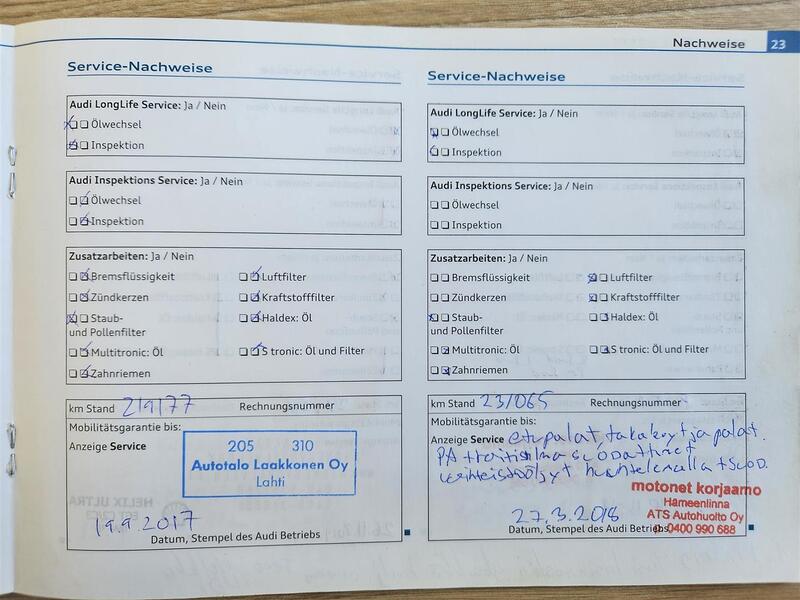 Nachweise 23
Service-Nachweise
Audi LongLife Service: Ja / Nein
Ölwechsel
Inspektion
Audi Inspektions Service: Ja / Nein
Ölwechsel
Inspektion
Zusatzarbeiten: Ja / Nein
Bremsflüssigkeit Luftfilter
Zündkerzen Kraftstofffilter
Staub- Haldex: Öl
und Pollenfilter
Multitronic: Öl S tronic: Öl und Filter
Zahnriemen
km Stand 219177 Rechnungsnummer
Mobilitätsgarantie bis:
Anzeige Service
205 310
Autotalo Laakkonen Oy
Lahti
19.9.2017
Datum, Stempel des Audi Betriebs
Service-Nachweise
Audi LongLife Service: Ja / Nein
Ölwechsel
Inspektion
Audi Inspektions Service: Ja / Nein
Ölwechsel
Inspektion
Zusatzarbeiten: Ja / Nein
Bremsflüssigkeit Luftfilter
Zündkerzen Kraftstofffilter
Staub- Haldex: Öl
und Pollenfilter
Multitronic: Öl S tronic: Öl und Filter
Zahnriemen
km Stand 231065 Rechnungsnummer
Mobilitätsgarantie bis:
Anzeige Service etupalat, takalevyt ja palat.
motonet korjaamo
Hämeenlinna
ATS Autohuolto Oy
p.0400 990 688
27.3.2018
Datum, Stempel des Audi Betriebs